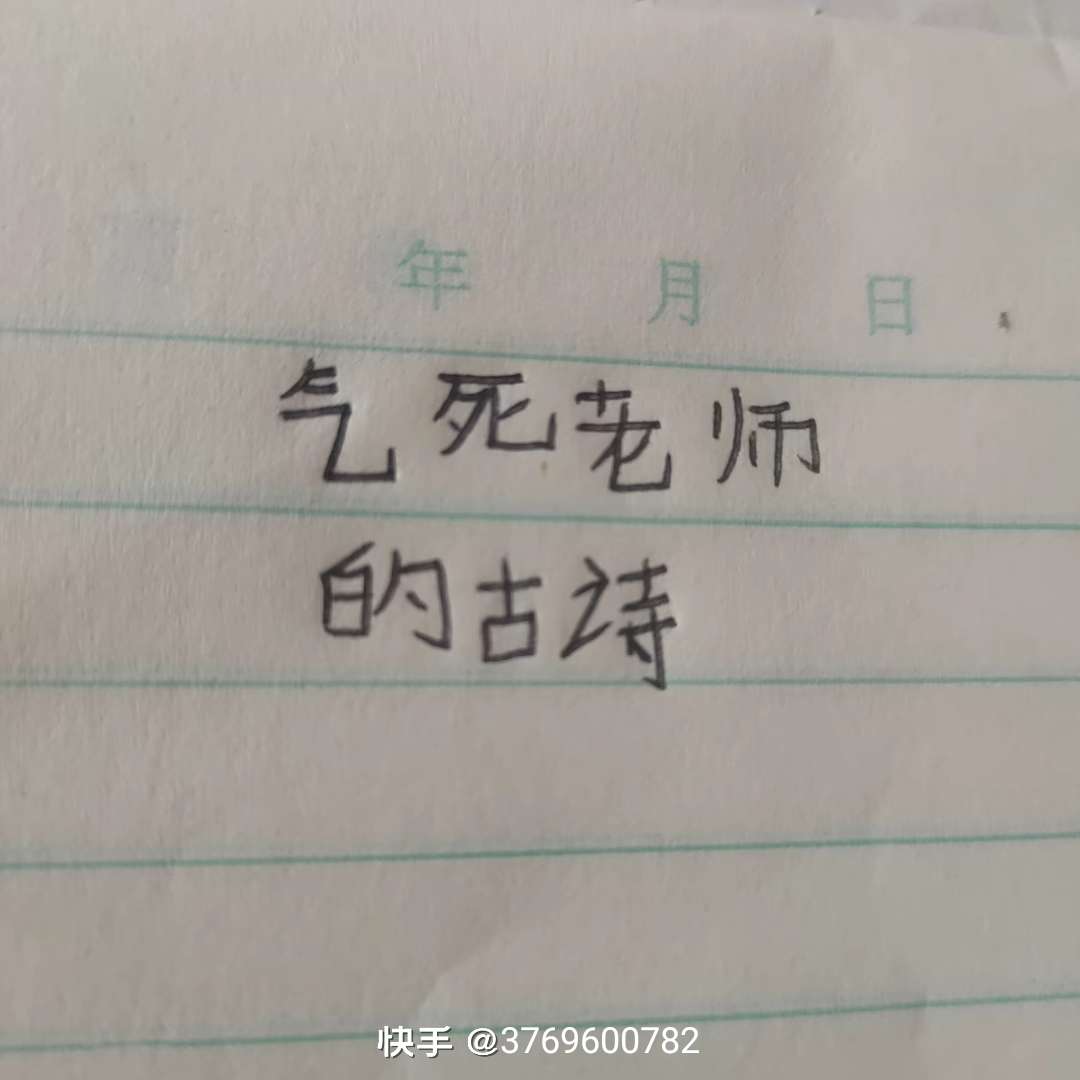 年 月 日
气死老师
的古诗
快手 @3769600782